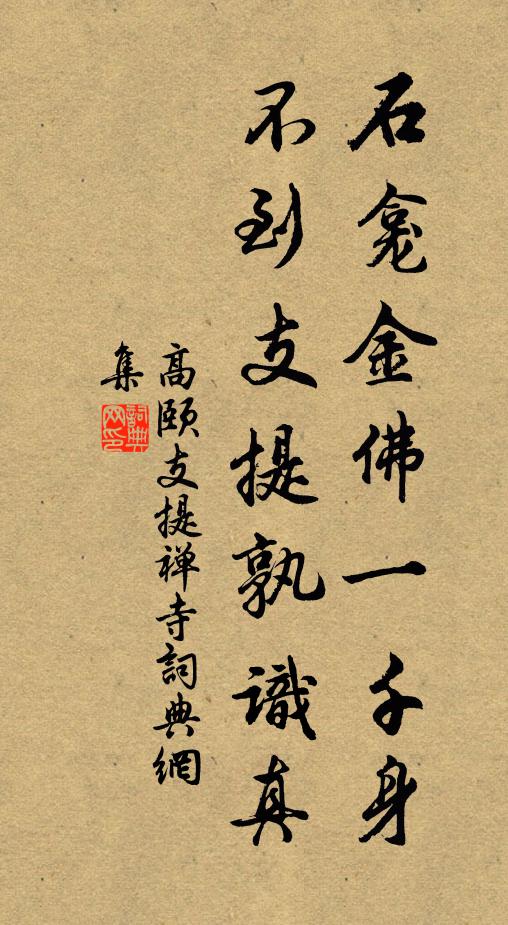 石龛金佛一千身
不到支提孰識真
高頤支提禅寺詞典網
集
詞典
网印